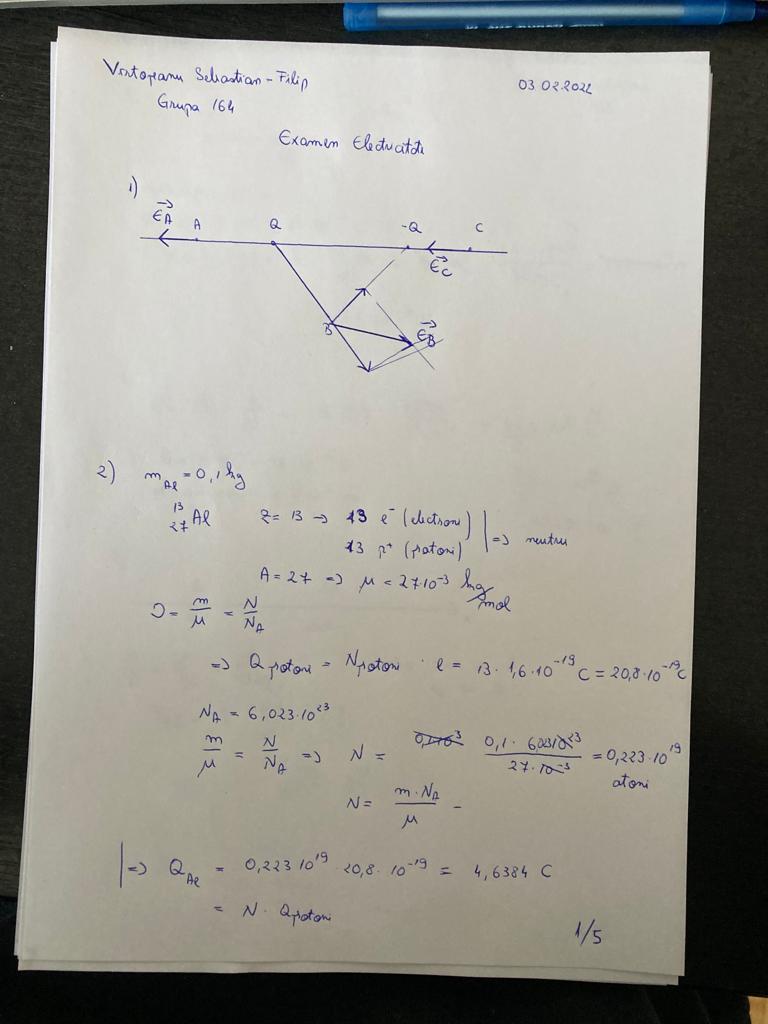 Sebastian-Filip
03.02.2022
Grupa 164
Examen Electricitate
1)
E⃗A A Q -Q C
E⃗C
B E⃗B
2) mAl = 0,1 kg
13 27 Al Z = 13 → 13 e⁻ (electroni)
13 p⁺ (protoni) | => neutru
A = 27 => μ = 27·10⁻³ kg/mol
ν = m/μ = N/NA
=> Qprotoni = Nprotoni · e = 13 · 1,6·10⁻¹⁹ C = 20,8·10⁻¹⁹ C
NA = 6,023·10²³
m/μ = N/NA => N = 0,1 · 6,023·10²³ / 27·10⁻³ = 0,223·10¹⁹ atomi
N = m·NA/μ -
| => QAl = 0,223·10¹⁹ · 20,8·10⁻¹⁹ = 4,6384 C
= N · Qprotoni
1/5